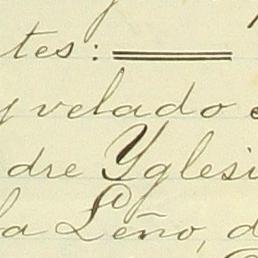 tes: =
y velado e
dre Yglesi
la Leño, d